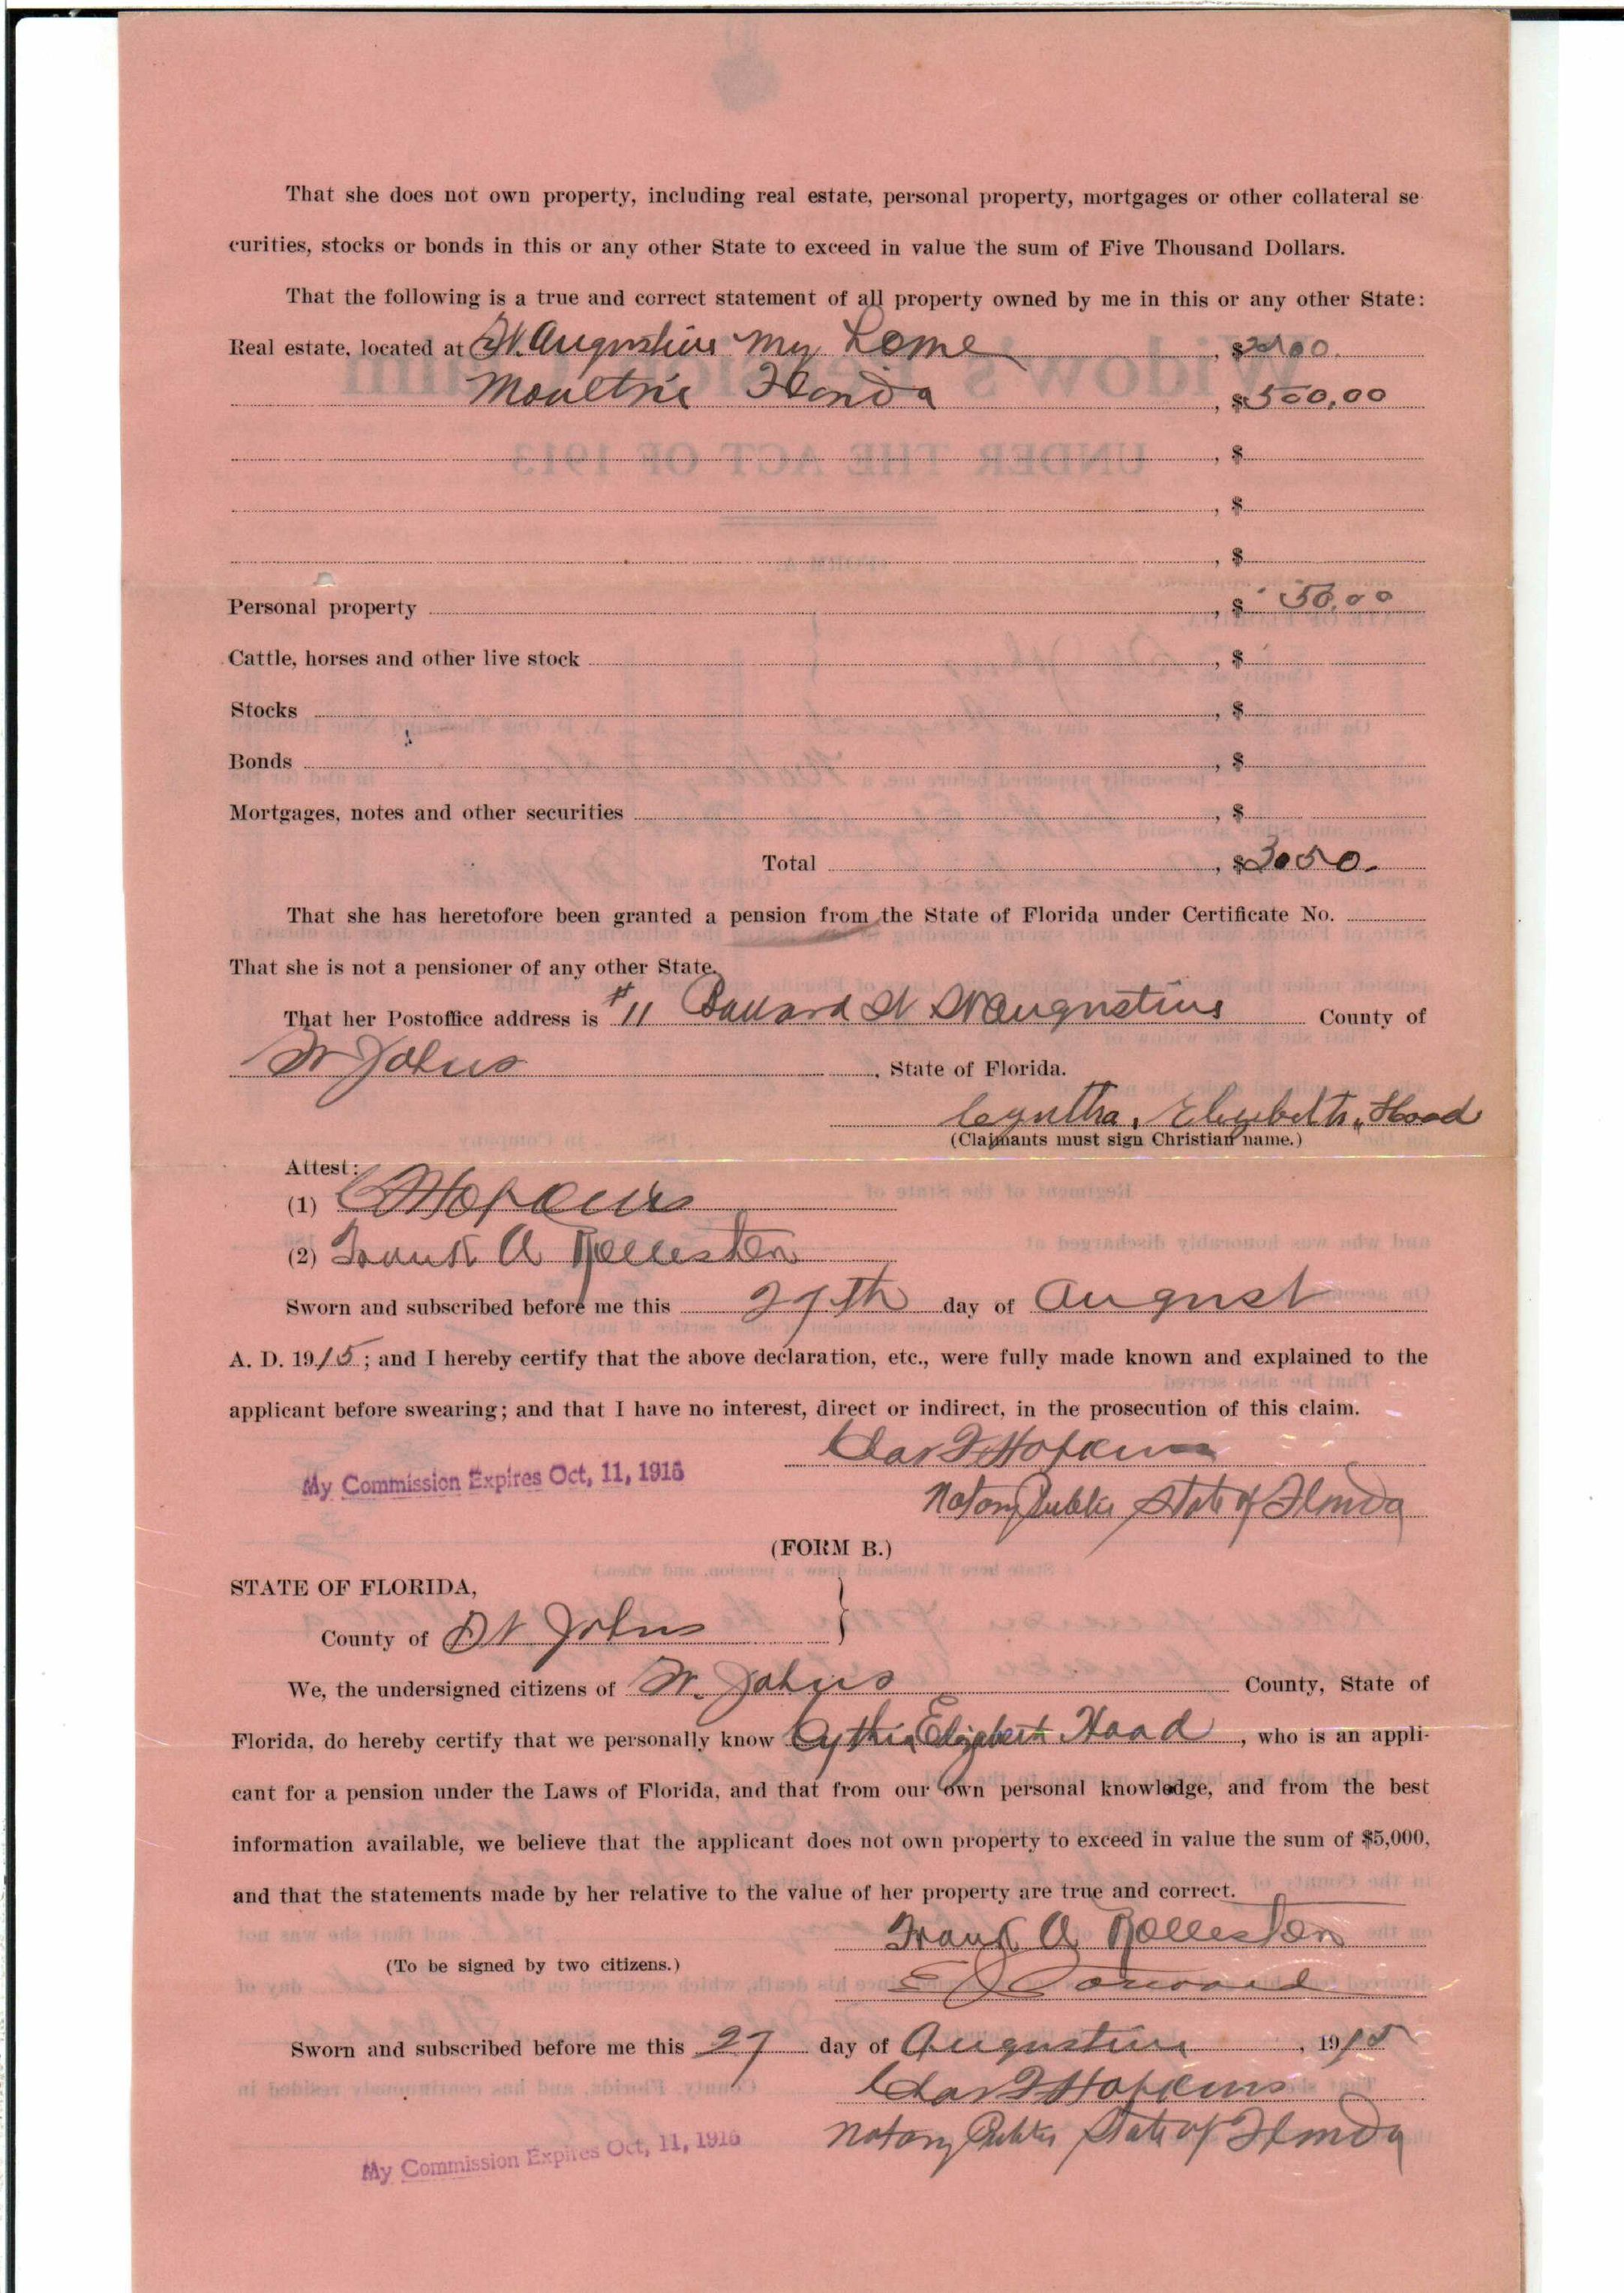 That she does not own property, including real estate, personal property, mortgages or other collateral se-
curities, stocks or bonds in this or any other State to exceed in value the sum of Five Thousand Dollars.
That the following is a true and correct statement of all property owned by me in this or any other State:
Real estate, located at St. Augustine My Home , $
Moultrie Florida , $500,00
, $
, $
, $
Personal property , $ 50,00
Cattle, horses and other live stock , $
Stocks , $
Bonds , $
Mortgages, notes and other securities , $
Total , $3050.
That she has heretofore been granted a pension from the State of Florida under Certificate No.
That she is not a pensioner of any other State.
That her Postoffice address is #11 St St Augustine County of
St Johns , State of Florida.
Cyntha, Elizabeth, Hood
(Claimants must sign Christian name.)
Attest:
(1) Hopkins
(2) Frank A Rolleston
Sworn and subscribed before me this 27th day of August
A. D. 1915; and I hereby certify that the above declaration, etc., were fully made known and explained to the
applicant before swearing; and that I have no interest, direct or indirect, in the prosecution of this claim.
Chas F Hopkins
My Commission Expires Oct, 11, 1916
Notary Public State of Florida
(FORM B.)
STATE OF FLORIDA,
County of St Johns
We, the undersigned citizens of St. Johns County, State of
Florida, do hereby certify that we personally know Cythia Elizabeth Hood , who is an appli-
cant for a pension under the Laws of Florida, and that from our own personal knowledge, and from the best
information available, we believe that the applicant does not own property to exceed in value the sum of $5,000,
and that the statements made by her relative to the value of her property are true and correct.
Frank A Rolleston
(To be signed by two citizens.)
Sworn and subscribed before me this 27 day of Augustine , 1915
Chas F Hopkins
Notary Public State of Florida
My Commission Expires Oct, 11, 1916